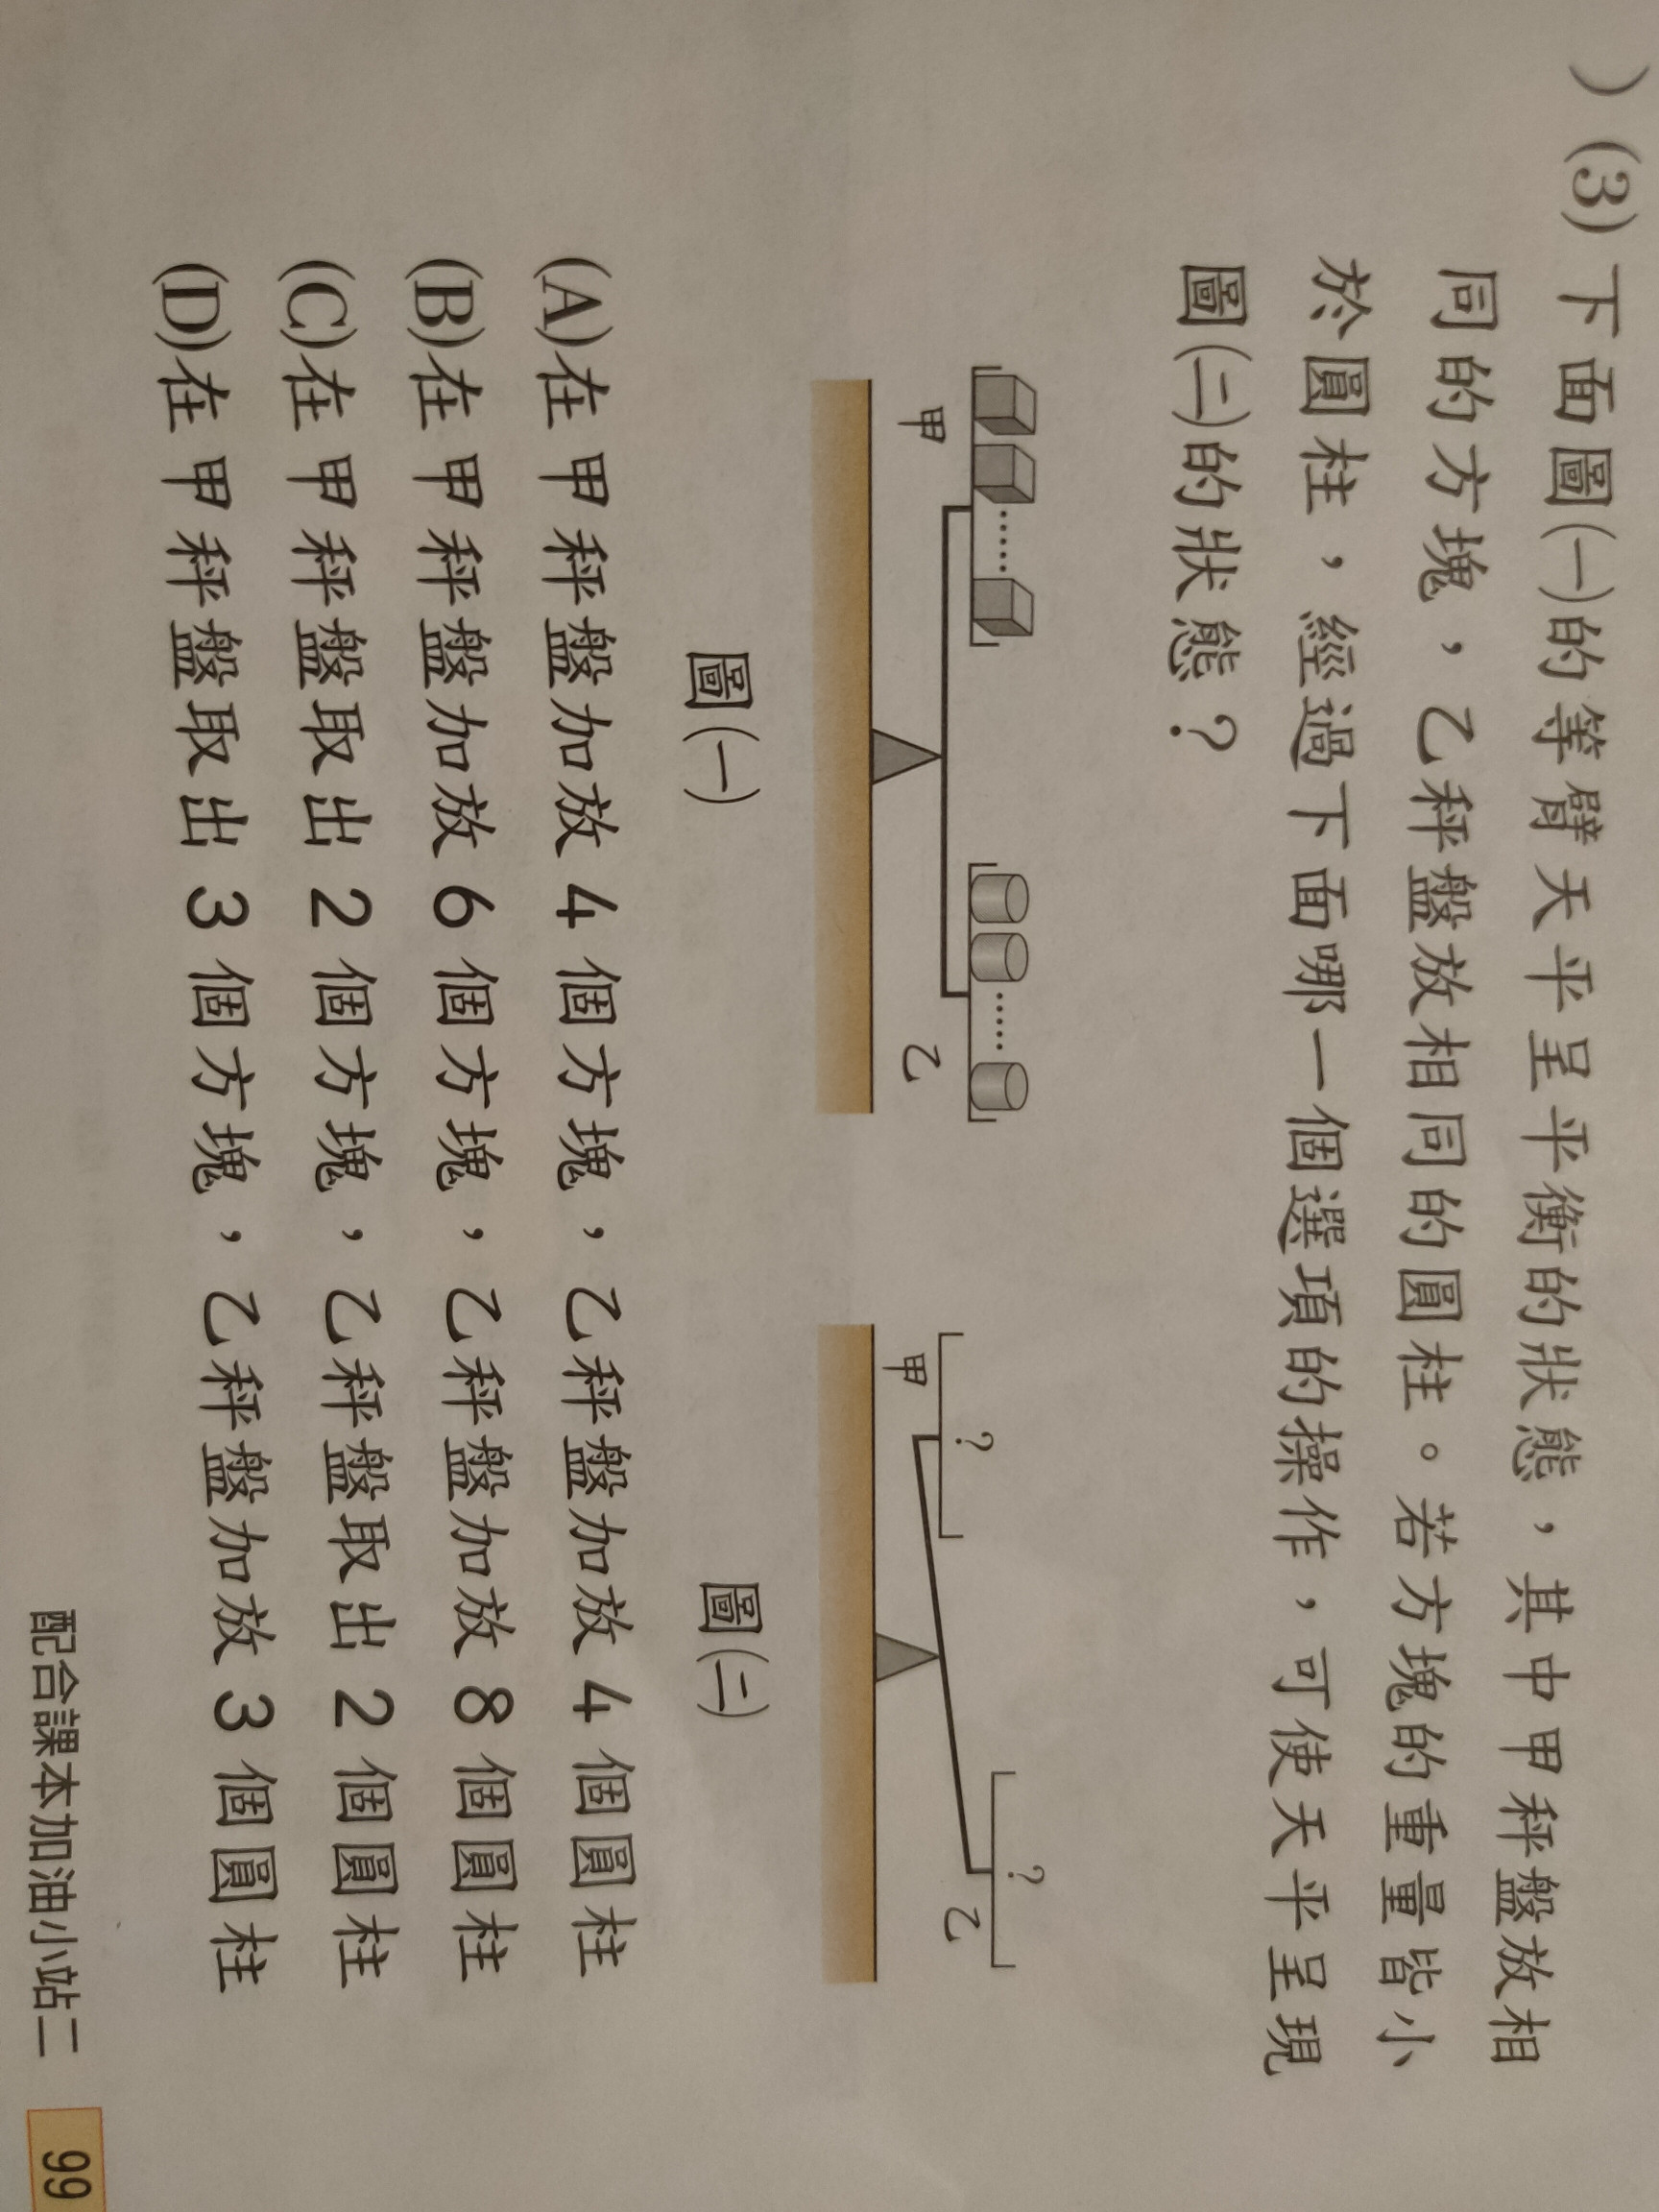 ) (3) 下面圖(一)的等臂天平呈平衡的狀態，其中甲秤盤放相
同的方塊，乙秤盤放相同的圓柱。若方塊的重量皆小
於圓柱，經過下面哪一個選項的操作，可使天平呈現
圖(二)的狀態？
甲
乙
圖(一)
?
甲
?
乙
圖(二)
(A)在甲秤盤加放 4 個方塊，乙秤盤加放 4 個圓柱
(B)在甲秤盤加放 6 個方塊，乙秤盤加放 8 個圓柱
(C)在甲秤盤取出 2 個方塊，乙秤盤取出 2 個圓柱
(D)在甲秤盤取出 3 個方塊，乙秤盤加放 3 個圓柱
配合課本加油小站二 99